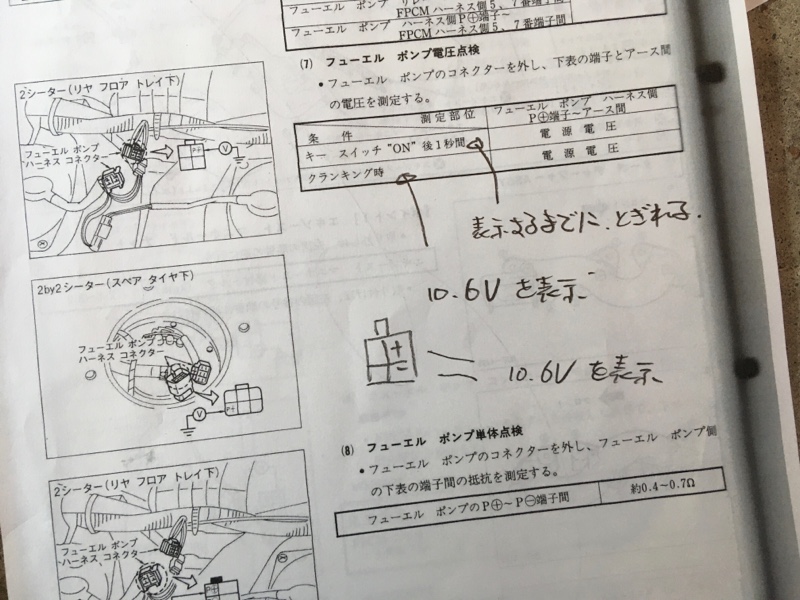 フューエル ポンプ リレー
FPCM ハーネス側5、7番端子間
フューエル ポンプ ハーネス側P⊕端子〜
FPCM ハーネス側5、7番端子間
(7) フューエル ポンプ電圧点検
• フューエル ポンプのコネクターを外し、下表の端子とアース間
の電圧を測定する。
測定部位
条件
フューエル ポンプ ハーネス側
P⊕端子〜アース間
キー スイッチ"ON"後1秒間
電源電圧
クランキング時
電源電圧
表示するまでに、とぎれる.
10.6V を表示
+
−
10.6V を表示
(8) フューエル ポンプ単体点検
• フューエル ポンプのコネクターを外し、フューエル ポンプ側
の下表の端子間の抵抗を測定する。
フューエル ポンプのP⊕〜P⊖端子間
約0.4~0.7Ω
2シーター(リヤ フロア トレイ下)
フューエル ポンプ
ハーネス コネクター
V
2by2シーター(スペア タイヤ下)
フューエル ポンプ
ハーネス コネクター
V
P+
2シーター(リヤ フロア トレイ下)
フューエル ポンプ
ハーネス コネクター